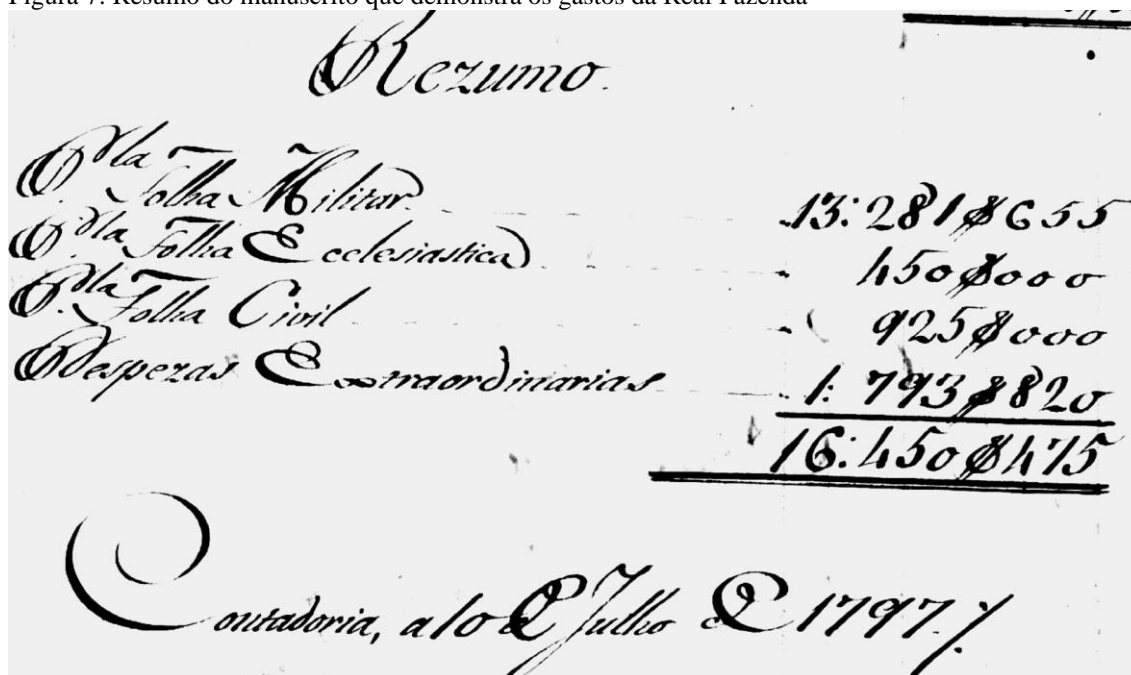 Figura 7. Resumo do manuscrito que demonstra os gastos da Real Fazenda
Rezumo.
P.la Folha Militar 13:281$655
P.la Folha Ecclesiastica 450$000
P.la Folha Civil 925$000
Despezas Extraordinarias 1:793$820
16:450$475
Contadoria, a 10 de Julho de 1797.